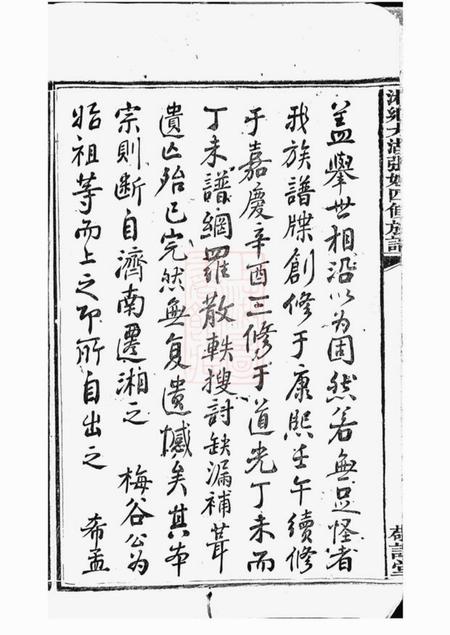 蓋舉世相沿以为固然若無足怪者
我族譜牒創修于康熙壬午續修
于嘉慶辛酉三修于道光丁未而
丁未譜網羅散軼搜討缺漏補葺
遺亡殆已完然無复遺憾矣其本
宗則断自濟南遷湘之 梅谷公为
始祖等而上之即所自出之 希孟
湘鄉大湖張姓四修族譜